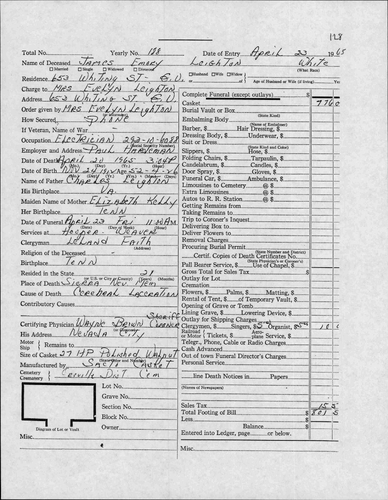 128
Total No. Yearly No. 128 Date of Entry April 22 1965
Name of Deceased James Emory Leighton White
Married Single Widowed Divorced (What Race)
Residence 653 Whiting St. G.V. Husband Wife Widow of
Age of Husband or Wife (if living)
Charge to Mrs Evelyn Leighton
Address 653 Whiting St G.V.
Order given by Mrs Evelyn Leighton
How Secured Same
If Veteran, Name of War
Occupation Electrician
Employer and Address Paul
Date of Death April 20 1965
Date of Birth Nov 24
Name of Father Charles Leighton
His Birthplace Va.
Maiden Name of Mother Elizabeth Kelly
Her Birthplace Tenn
Date of Funeral April 23 Fri 11:00 AM
Services at Hooper Weaver
Clergyman Leland Faith
Religion of the Deceased
Birthplace Tenn
Resided in the State 21
Place of Death Sierra Nev Mem
Cause of Death Cerebral Laceration
Contributory Causes
Certifying Physician Wayne Brown Sheriff Coroner
His Address Nevada City
Motor Ship Remains to
Size of Casket 27 HP Polished Walnut
Manufactured by Sacto Casket
Cemetery Crematory Dist Cem
Lot No.
Grave No.
Section No.
Block No.
Owner
Diagram of Lot or Vault
Misc.
Complete Funeral (except outlays) $
Casket 776
Burial Vault or Box
(Name of Embalmer)
Embalming Body
Barber, $ Hair Dressing, $
Dressing Body, $ Underwear, $
Suit or Dress
(State Kind and Color)
Slippers, $ Hose, $
Folding Chairs, $ Tarpaulin, $
Candelabrum, $ Candles, $
Door Spray, $ Gloves, $
Funeral Car, $ Ambulance, $
Limousines to Cemetery @ $
Extra Limousines @ $
Autos to R. R. Station @ $
Getting Remains from
Taking Remains to
Trip to Coroner's Inquest
Delivering Box to
Deliver Flowers to
Removal Charges
Procuring Burial Permit
(State Number and District)
Certif. Copies of Death Certificates No.
Pall Bearer Service, $ Use of Chapel, $
Gross Total for Sales Tax $
Outlay for Lot
Cremation
Flowers, $ Palms, $ Matting, $
Rental of Tent, $ of Temporary Vault, $
Opening of Grave or Tomb
Lining Grave, $ Lowering Device, $
Outlay for Shipping Charges
Clergymen, $ Singers, $ Organist, $
Railroad or Motor Tickets, $ Aeroplane Service, $
Telg., Phone, Cable or Radio Charges
Cash Advanced
Out of town Funeral Director's Charges
Personal Service
line Death Notices in Papers
(Names of Newspapers)
Sales Tax
Total Footing of Bill $ 801
Less $
Balance $
Entered into Ledger, page or below.
Misc.